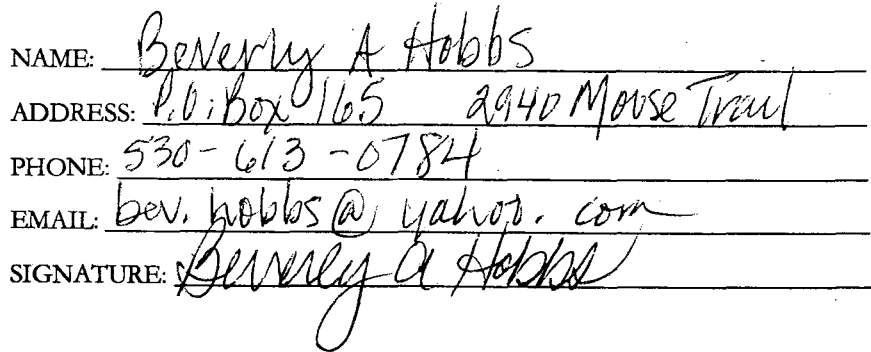 NAME: Beverly A Hobbs
ADDRESS: P.O. Box 165 2940 Mouse Trail
PHONE: 530-613-0784
EMAIL: bev.hobbs@yahoo.com
SIGNATURE: Beverly A Hobbs